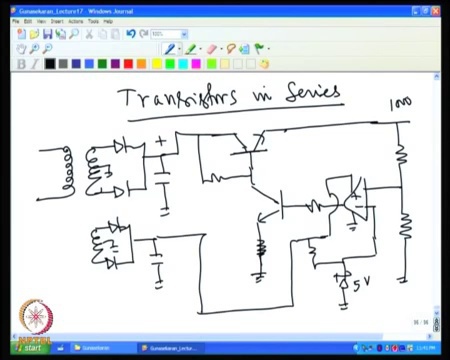 Gunasekaran_Lecture17 - Windows Journal
File Edit View Insert Actions Tools Help
100%
B I
Transistors in Series
1000
+
+
-
+
5V
NPTEL
start
Gunasekaran
Gunasekaran_Lectu...